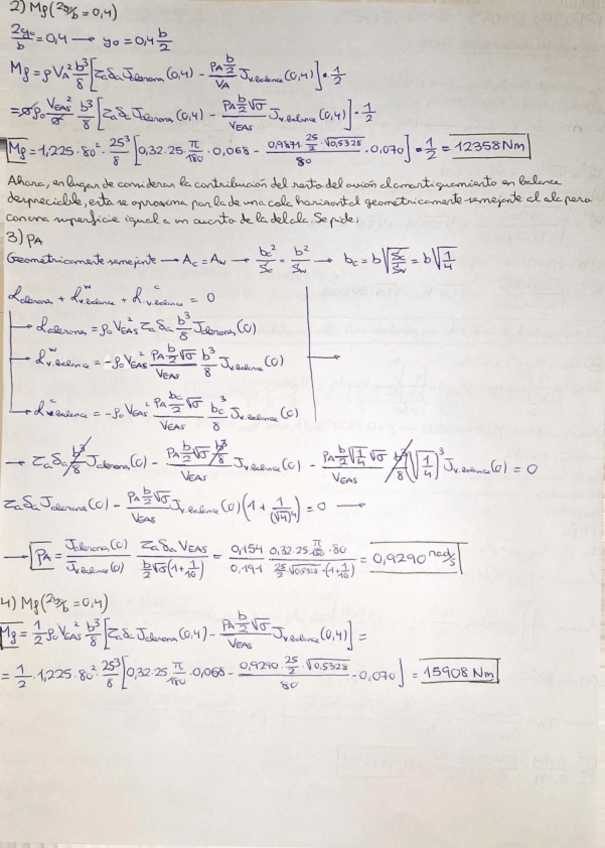 2) Mf(2y0/b = 0,4)
2y0/b = 0,4 → y0 = 0,4 b/2
Mf = ρ VA² b³/8 [τa δa Jalerona(0,4) - (PA b/2)/VA Jv.balance(0,4)] · 1/2
= σρ0 VEAS²/σ b³/8 [τa δa Jalerona(0,4) - (PA b/2 √σ)/VEAS Jv.balance(0,4)] · 1/2
Mf = 1,225 · 80² · 25³/8 [0,32 · 25 · π/180 · 0,068 - (0,9871 · 25/2 · √0,5328)/80 · 0,070] · 1/2 = 12358 Nm
Ahora, en lugar de considerar la contribución del resto del avión al amortiguamiento en balance
despreciable, esta se aproxima por la de una cola horizontal geométricamente semejante al ala pero
con una superficie igual a un cuarto de la del ala. Se pide:
3) PA
Geométricamente semejante → Ac = Aw → bc²/Sc = b²/Sw → bc = b√(Sc/Sw) = b√(1/4)
Lalerona + Lʷv.balance + Lᶜv.balance = 0
Lalerona = ρ0 VEAS² τa δa b³/8 Jalerona(0)
Lʷv.balance = -ρ0 VEAS² (PA b/2 √σ)/VEAS b³/8 Jv.balance(0) →
Lᶜv.balance = -ρ0 VEAS² (PA bc/2 √σ)/VEAS bc³/8 Jv.balance(0)
→ τa δa b³/8 Jalerona(0) - (PA b/2 √σ b³/8)/VEAS Jv.balance(0) - (PA b/2 √(1/4) √σ)/VEAS b³/8 (√(1/4))³ Jv.balance(0) = 0
τa δa Jalerona(0) - (PA b/2 √σ)/VEAS Jv.balance(0) (1 + 1/(√4)⁴) = 0 →
→ PA = Jalerona(0)/Jv.balance(0) (τa δa VEAS)/(b/2 √σ (1 + 1/16)) = 0,154/0,191 (0,32 · 25 · π/180 · 80)/(25/2 √0,5328 · (1 + 1/16)) = 0,9290 rad/s
4) Mf(2y0/b = 0,4)
Mf = 1/2 ρ0 VEAS² b³/8 [τa δa Jalerona(0,4) - (PA b/2 √σ)/VEAS Jv.balance(0,4)] =
= 1/2 · 1,225 · 80² · 25³/8 [0,32 · 25 · π/180 · 0,068 - (0,9290 · 25/2 · √0,5328)/80 · 0,070] = 15908 Nm